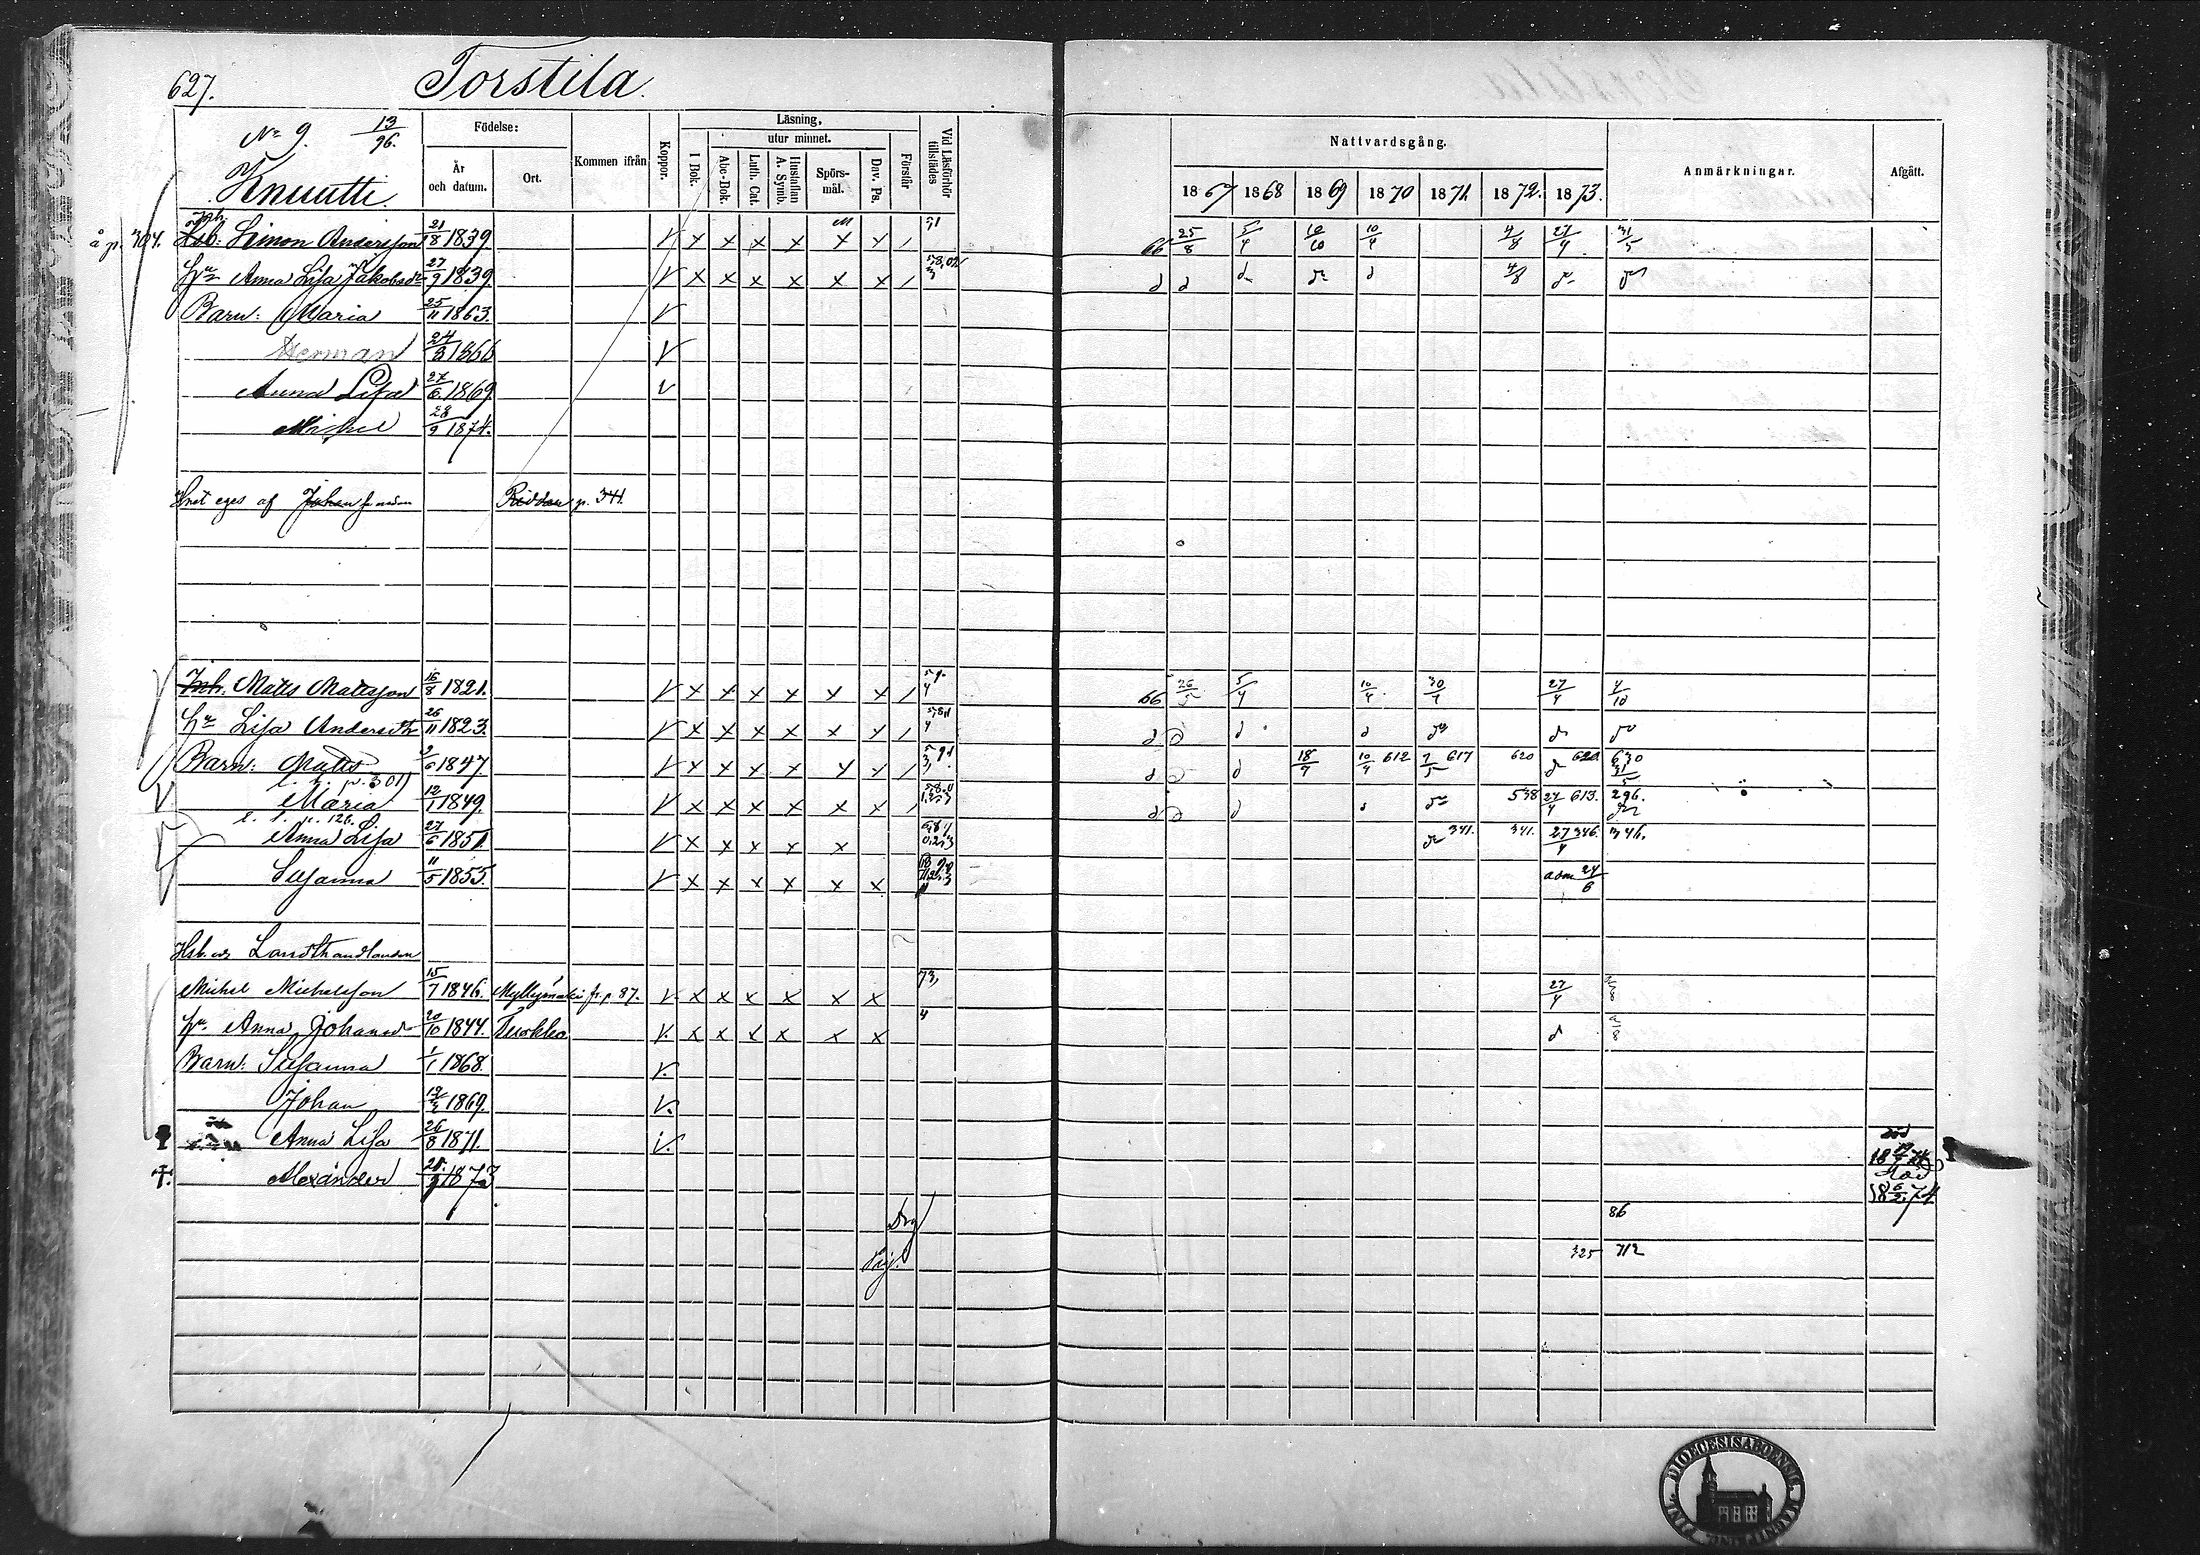 627. Torstila.
No 9. 13/96.
Knuutti.
Födelse:
År och datum.
Ort.
Kommen ifrån
Koppor.
Läsning,
utur minnet.
I Bok.
Abc-Bok.
Luth. Cat.
Hustaflan A. Symb.
Spörs-mål.
Dav. Ps.
Förstår
Vid Läsförhör tillstädes
Nattvardsgång.
1867 1868 1869 1870 1871. 1872. 1873.
Anmärkningar.
Afgått.
å p. 304. Hsb: Simon Andersson 21/8 1839 V x x x x x x / 66 25/8 5/4 10/10 10/4 4/8 27/4 31/5
Hu Anna Lisa Jakobsdr 27/9 1839. V x x x x x x / d d d d d 4/8 d d
Barn: Maria 25/11 1863. V
Herman 24/3 1866 V
Anna Lisa 27/6 1869 V
Michel 28/9 1874.
Hmt eges af Johan p. 341.
Inh. Matts Mattsson 16/8 1821. V x x x x x x / 66 26/5 5/4 10/4 30/4 27/4 4/10
Hu Lisa Andersdr 26/11 1823. V x x x x x x / d d d d d d d
Barn: Matts 3/6 1847 V x x x x x x / d d d 18/7 10/4 612 7/5 617 620 d 620 630 31/5
p. 301)
Maria 12/1 1849. V x x x x x x / d d d d d 538 27/4 613. 296.
p. 126.
Anna Lisa 27/6 1851 V x x x x x d 341. 341. 27/4 346. 346.
Susanna 11/5 1855. V x x x x x x adm 24/6
Hsb. Landthandlanden
Michel Michelsson 15/7 1846. Myllymäki fr. p. 87. V x x x x x x 73, 27/4
Hu Anna Johansd 20/10 1844. Turkko V. x x x x x x 4 d
Barn: Susanna 1/1 1868. V.
Johan 1869. V.
Anna Lisa 26/8 1871. V. död
Alexander 1873 död 18 6/2 74
Drg 86
Pig. 325 712
DIOECESIS ABOENSIS